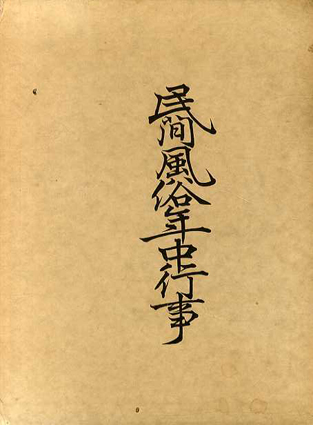 民間風俗年中行事